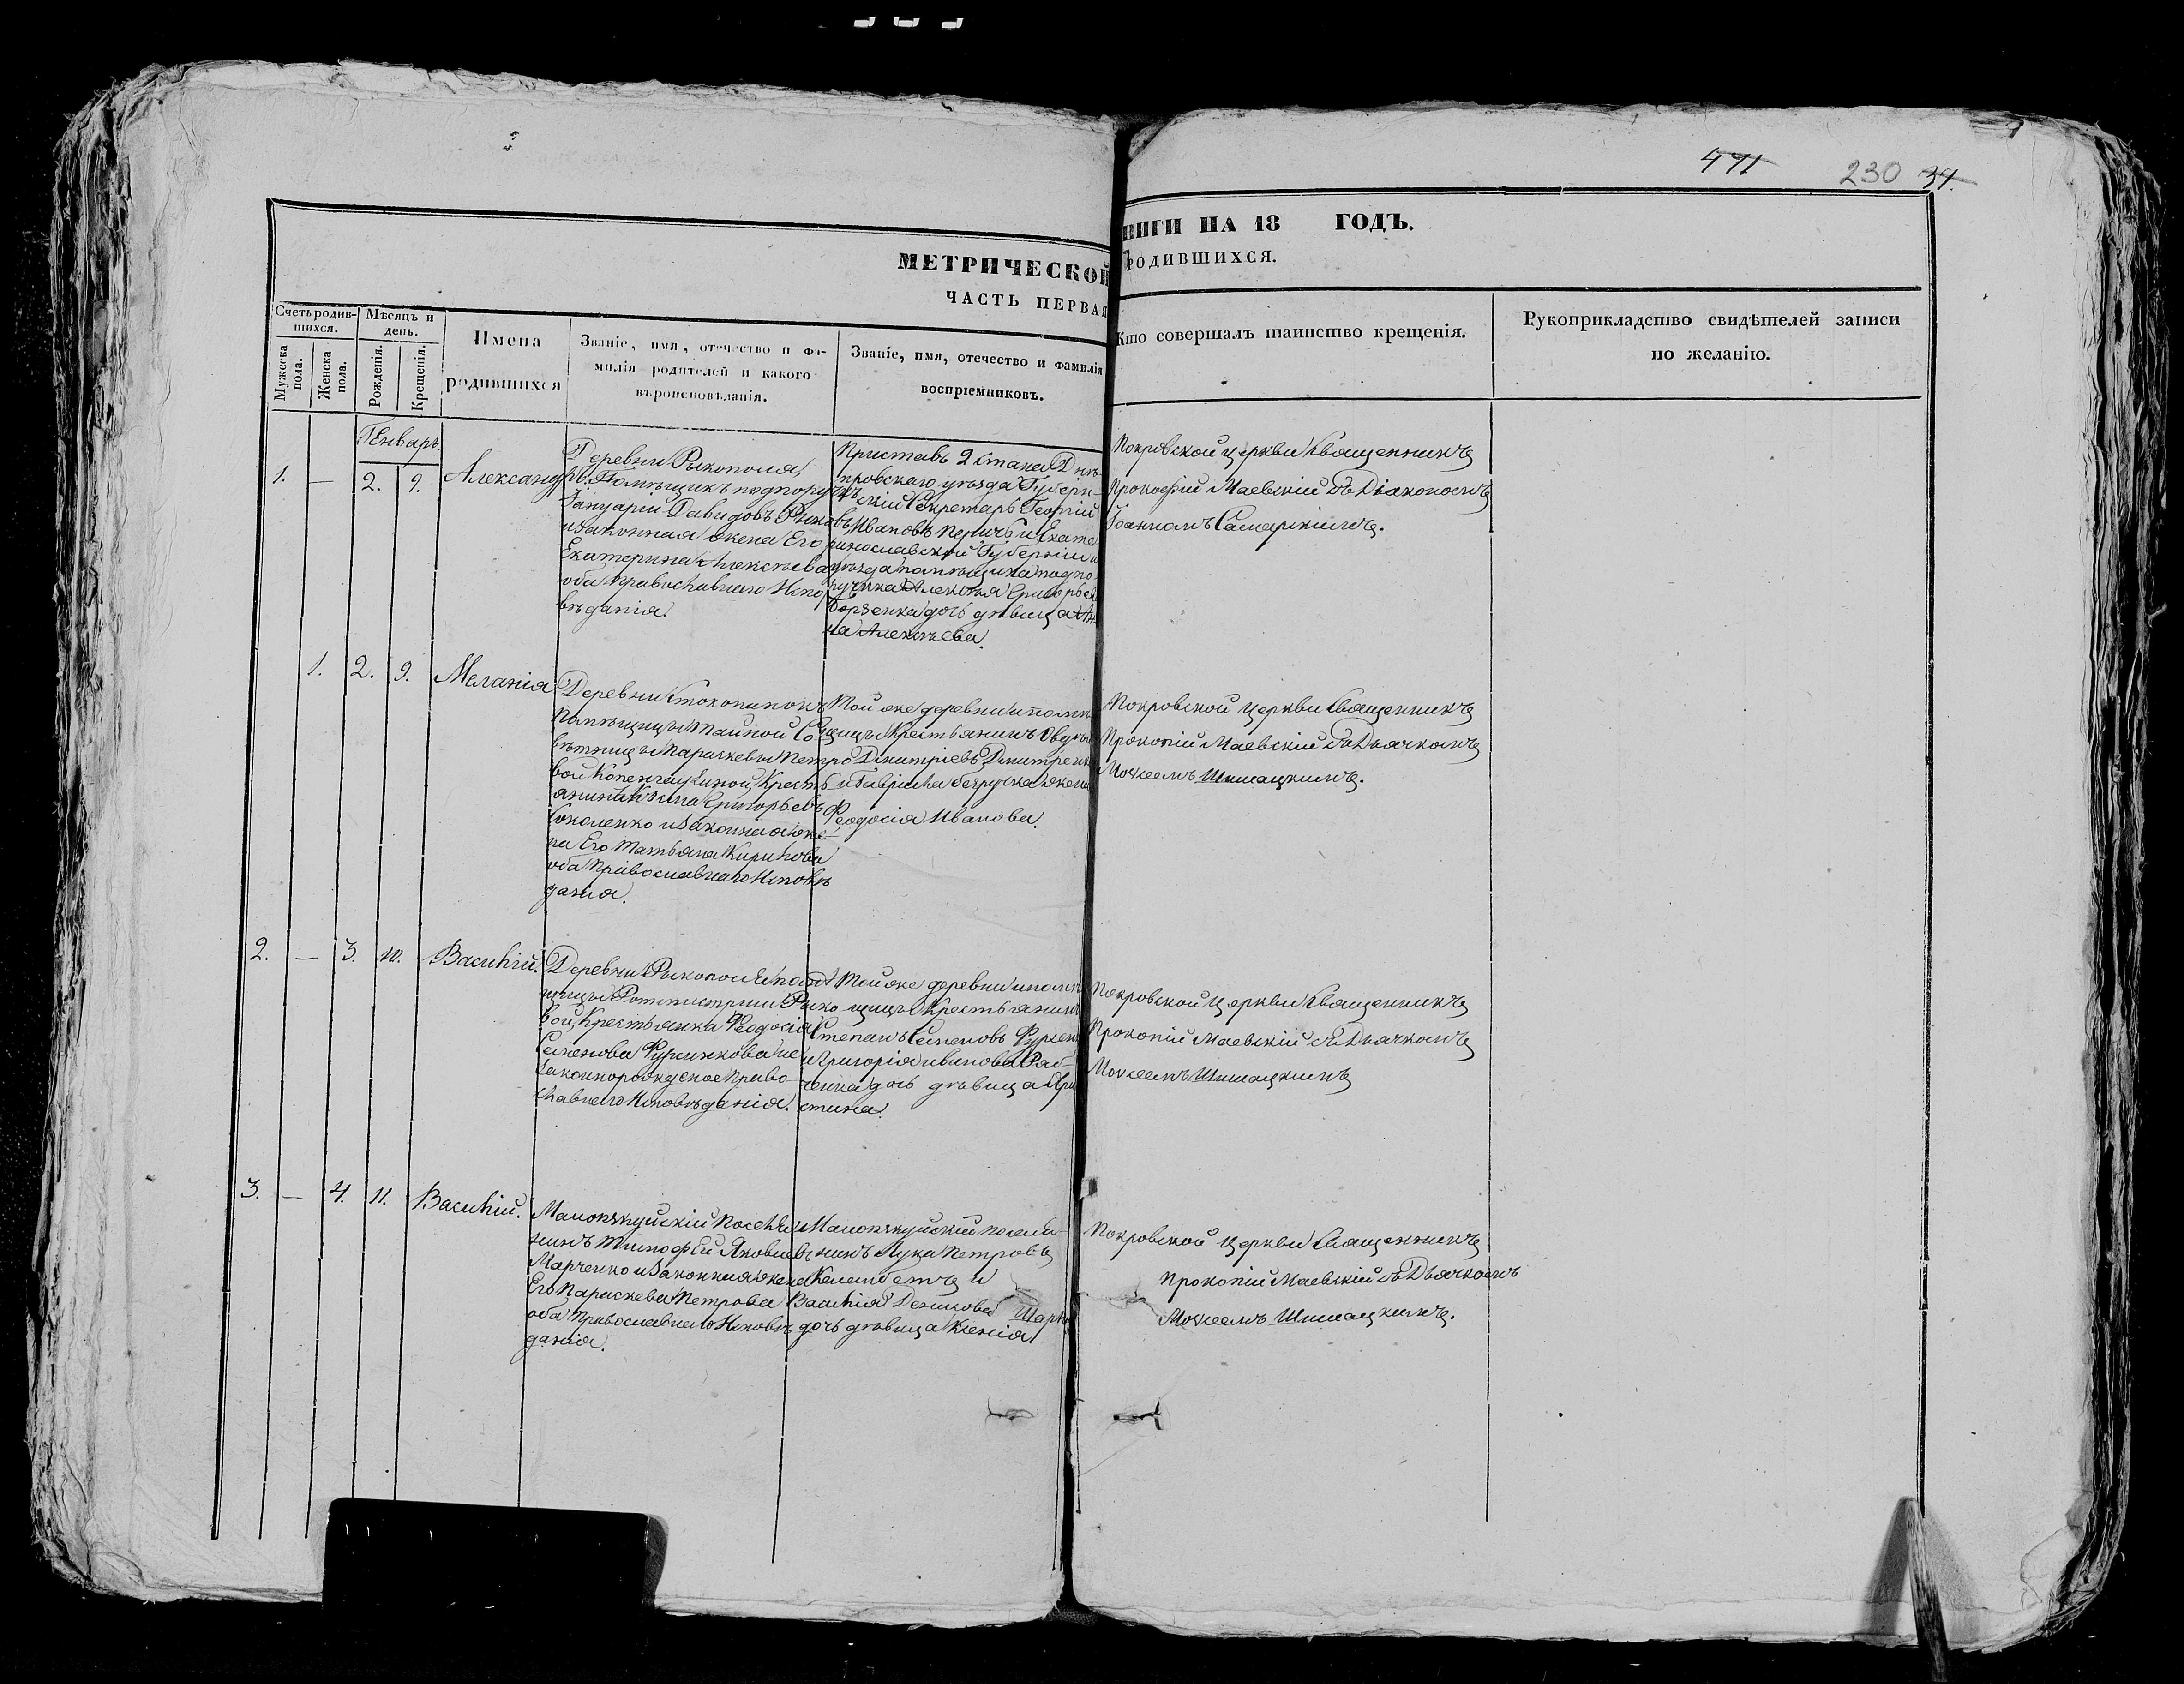 471 230 37.
МЕТРИЧЕСКОЙ
НИГИ НА 18 ГОДЪ.
ЧАСТЬ ПЕРВАЯ
РОДИВШИХСЯ.
Счетъ родив-
шихся.
Мужеска
пола.
Женска
пола.
Мѣсяцъ и
день.
Рожденія.
Крещенія.
Имена
родившихся
Званіе, имя, отечество и фа-
милія родителей и какого
вѣроисповѣданія.
Званіе, имя, отечество и фамилія
воспріемниковъ.
Кто совершалъ таинство крещенія.
Рукоприкладство свидѣтелей записи
по желанію.
Генварь.
1. — 2. 9. Александръ.
Деревни Рыкополя
Помѣщикъ подпоручикъ
Іануарій Давидовъ Рыковъ
и законная жена Его
Екатерина Алексѣева
оба православнаго Испо
вѣданія.
Приставъ 2 стана Днѣ-
провскаго уѣзда Губерн-
скій Секретарь Георгій
Ивановъ и Екате
ринославской Губерніи и
уѣзда помѣщика подпо
ручика Алексѣя Григорьев
Борзенка дочь дѣвица Ан
на Алексѣева.
Покровской церкви Священникъ
Прокофій Маевскій съ Діакономъ
Іоанномъ Самарскимъ.
1. 2. 9. Меланія
Деревни
Помѣщицы тайной Со
вѣтницы Параскевы Петро
вой Крестъ
янинъ Козма Григорьевъ
Соколенко и законная же-
на Его Татьяна Кирилова
оба православнаго Исповѣ
данія.
Той же деревни и помѣ
щицы Крестьянинъ
Димитріевъ Дмитренк
и Гавріила жена
Феодосія Иванова.
Покровской церкви Священникъ
Прокопій Маевскій съ Дьячкомъ
Моѵсеемъ Шишацкимъ.
2. — 3. 10. Василій.
Деревни Рыкополя помѣ
щицы Ротмистрши Рыко
вой Крестьянка Феодосія
Семенова не
законнорожденное право-
славнаго Исповѣданія.
Той же деревни и помѣ
щицы Крестьянинъ
Степанъ Семеновъ
и Григорія Иванова Ряб-
ченка дочь дѣвица Хри
стина.
Покровской церкви Священникъ
Прокопій Маевскій съ Дьячкомъ
Моѵсеемъ Шишацкимъ
3. — 4. 11. Василій.
Поселя
нинъ Тимофей Яковлевъ
Марченко и законная жена
Его Параскева Петрова
оба православнаго Исповѣ
данія.
посели-
нинъ Лука Петровъ
и
Василія Денисова
дочь дѣвица Ксенія
Покровской церкви Священникъ
Прокопій Маевскій съ Дьячкомъ
Моѵсеемъ Шишацкимъ.